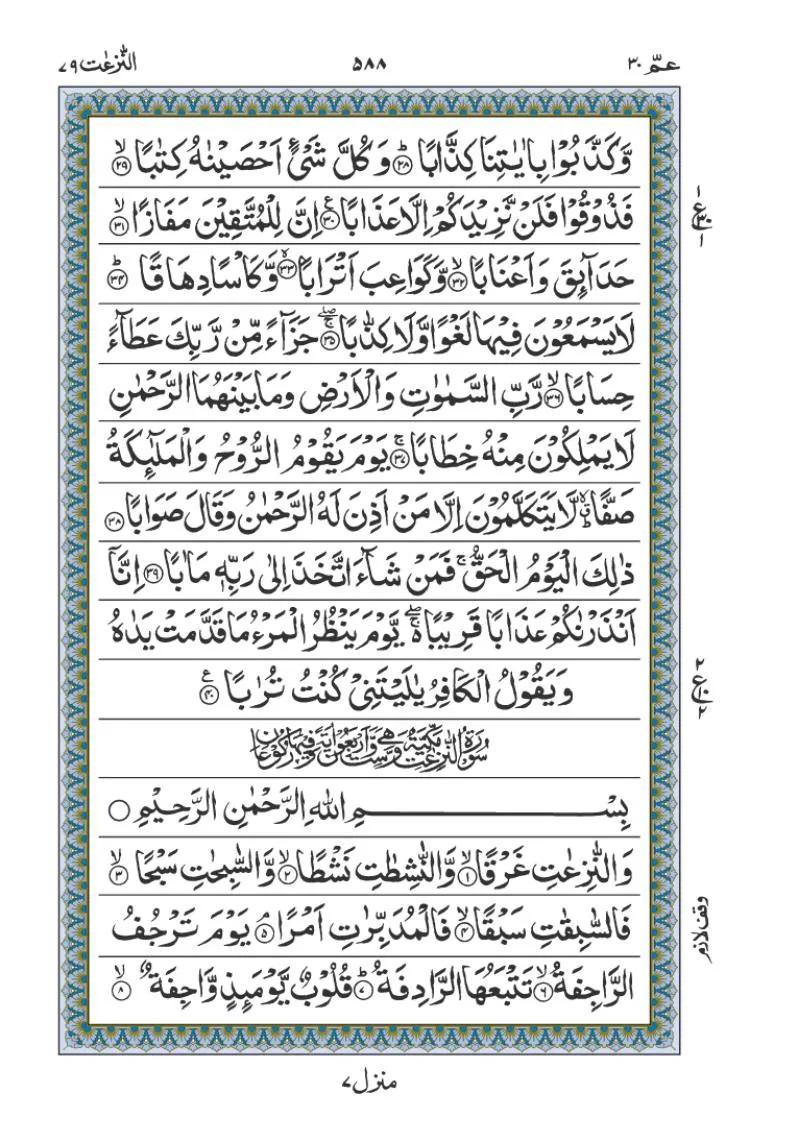 عمّ ٣٠ ٥٨٨ النّٰزعٰت ٧٩
وَّكَذَّبُوْا بِاٰيٰتِنَا كِذَّابًا ؕ﴿۲۸﴾ وَ كُلَّ شَیْءٍ اَحْصَیْنٰهُ كِتٰبًا ۙ﴿۲۹﴾
فَذُوْقُوْا فَلَنْ نَّزِیْدَكُمْ اِلَّا عَذَابًا ﴿۳۰﴾ع اِنَّ لِلْمُتَّقِیْنَ مَفَازًا ۙ﴿۳۱﴾
حَدَآىِٕقَ وَ اَعْنَابًا ۙ﴿۳۲﴾ وَّ كَوَاعِبَ اَتْرَابًا ۙ﴿۳۳﴾ وَّ كَاْسًا دِهَاقًا ؕ﴿۳۴﴾
لَا یَسْمَعُوْنَ فِیْهَا لَغْوًا وَّ لَا كِذّٰبًا ۚۖ﴿۳۵﴾ جَزَآءً مِّنْ رَّبِّكَ عَطَآءً
حِسَابًا ۙ﴿۳۶﴾ رَّبِّ السَّمٰوٰتِ وَ الْاَرْضِ وَ مَا بَیْنَهُمَا الرَّحْمٰنِ
لَا یَمْلِكُوْنَ مِنْهُ خِطَابًا ۚ﴿۳۷﴾ یَوْمَ یَقُوْمُ الرُّوْحُ وَ الْمَلٰٓىِٕكَةُ
صَفًّا ۙؕ لَّا یَتَكَلَّمُوْنَ اِلَّا مَنْ اَذِنَ لَهُ الرَّحْمٰنُ وَ قَالَ صَوَابًا ﴿۳۸﴾
ذٰلِكَ الْیَوْمُ الْحَقُّ ۚ فَمَنْ شَآءَ اتَّخَذَ اِلٰی رَبِّهٖ مَاٰبًا ﴿۳۹﴾ اِنَّاۤ
اَنْذَرْنٰكُمْ عَذَابًا قَرِیْبًا ۚۖ۬ یَّوْمَ یَنْظُرُ الْمَرْءُ مَا قَدَّمَتْ یَدٰهُ
وَ یَقُوْلُ الْكٰفِرُ یٰلَیْتَنِیْ كُنْتُ تُرٰبًا ﴿۴۰﴾ع
سُوْرَةُ النّٰزِعٰتِ مَكِّيَّةٌ وَّهِيَ سِتٌّ وَّاَرْبَعُوْنَ اٰيَةً وَّفِيْهَا رُكُوْعَانِ
بِسْمِ اللّٰهِ الرَّحْمٰنِ الرَّحِیْمِ ○
وَ النّٰزِعٰتِ غَرْقًا ۙ﴿۱﴾ وَّ النّٰشِطٰتِ نَشْطًا ۙ﴿۲﴾ وَّ السّٰبِحٰتِ سَبْحًا ۙ﴿۳﴾
فَالسّٰبِقٰتِ سَبْقًا ۙ﴿۴﴾ فَالْمُدَبِّرٰتِ اَمْرًا ۘ﴿۵﴾ یَوْمَ تَرْجُفُ
الرَّاجِفَةُ ۙ﴿۶﴾ تَتْبَعُهَا الرَّادِفَةُ ؕ﴿۷﴾ قُلُوْبٌ یَّوْمَىِٕذٍ وَّاجِفَةٌ ۙ﴿۸﴾
١ ع ٣٠ ١
٢ ع ١٠ ٢
وقف لازم
منزل ٧